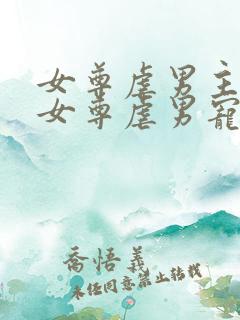 女尊虐男主
女尊虐男寵
喬悟義
未经同意禁止转载